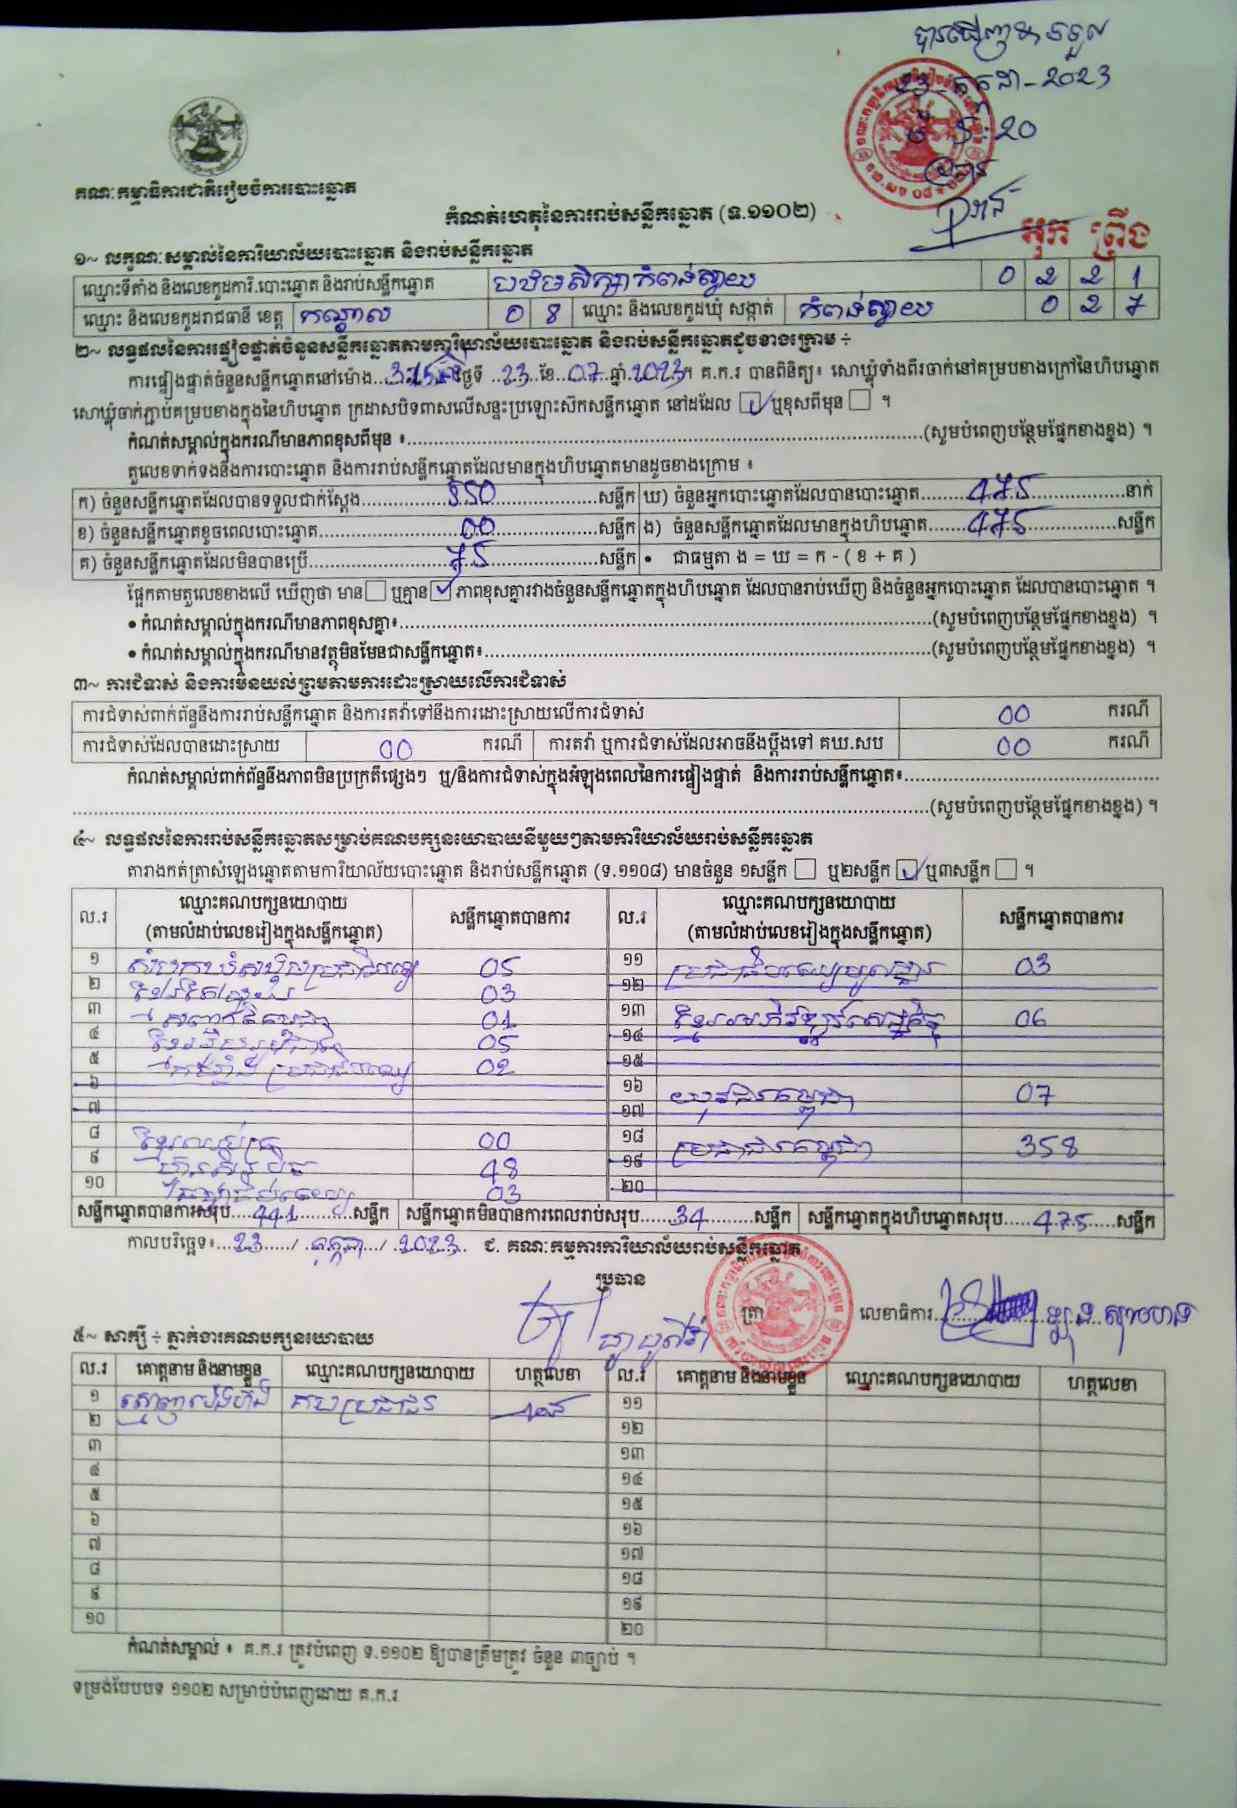 23-កក្កដា-2023
20
គណៈកម្មាធិការជាតិរៀបចំការបោះឆ្នោត
កំណត់ហេតុនៃការរាប់សន្លឹកឆ្នោត (ទ.១១០២)
អុក គ្រឿង
១~ លក្ខណៈសម្គាល់នៃការិយាល័យបោះឆ្នោត និងរាប់សន្លឹកឆ្នោត
ឈ្មោះទីតាំង និងលេខកូដការិ.បោះឆ្នោត និងរាប់សន្លឹកឆ្នោត បឋមសិក្សាកំពង់ស្វាយ 0 2 2 1
ឈ្មោះ និងលេខកូដរាជធានី ខេត្ត កណ្តាល 0 8 ឈ្មោះ និងលេខកូដឃុំ សង្កាត់ កំពង់ស្វាយ 0 2 7
២~ លទ្ធផលនៃការផ្ទៀងផ្ទាត់ចំនួនសន្លឹកឆ្នោតតាមការិយាល័យបោះឆ្នោត និងរាប់សន្លឹកឆ្នោតដូចខាងក្រោម ៖
ការផ្ទៀងផ្ទាត់ចំនួនសន្លឹកឆ្នោតនៅម៉ោង 3:15 ថ្ងៃទី 23 ខែ 07 ឆ្នាំ 2023។ គ.ក.រ បានពិនិត្យ៖ សោឃ្លុំទាំងពីរចាក់នៅគម្របខាងក្រៅនៃហិបឆ្នោត
សោឃ្លុំចាក់ភ្ជាប់គម្របខាងក្នុងនៃហិបឆ្នោត ក្រដាសបិទពាសលើសន្ទះប្រឡោះស៊កសន្លឹកឆ្នោត នៅដដែល ☑ ឬខុសពីមុន ☐ ។
កំណត់សម្គាល់ក្នុងករណីមានភាពខុសពីមុន ៖ (សូមបំពេញបន្ថែមផ្នែកខាងខ្នង) ។
តួលេខទាក់ទងនឹងការបោះឆ្នោត និងការរាប់សន្លឹកឆ្នោតដែលមានក្នុងហិបឆ្នោតមានដូចខាងក្រោម ៖
ក) ចំនួនសន្លឹកឆ្នោតដែលបានទទួលជាក់ស្តែង 550 សន្លឹក ឃ) ចំនួនអ្នកបោះឆ្នោតដែលបានបោះឆ្នោត 475 នាក់
ខ) ចំនួនសន្លឹកឆ្នោតខូចពេលបោះឆ្នោត 00 សន្លឹក ង) ចំនួនសន្លឹកឆ្នោតដែលមានក្នុងហិបឆ្នោត 475 សន្លឹក
គ) ចំនួនសន្លឹកឆ្នោតដែលមិនបានប្រើ 75 សន្លឹក • ជាធម្មតា ង = ឃ = ក - ( ខ + គ )
ផ្អែកតាមតួលេខខាងលើ ឃើញថា មាន ☐ ឬគ្មាន ☑ ភាពខុសគ្នារវាងចំនួនសន្លឹកឆ្នោតក្នុងហិបឆ្នោត ដែលបានរាប់ឃើញ និងចំនួនអ្នកបោះឆ្នោត ដែលបានបោះឆ្នោត ។
• កំណត់សម្គាល់ក្នុងករណីមានភាពខុសគ្នា៖ (សូមបំពេញបន្ថែមផ្នែកខាងខ្នង) ។
• កំណត់សម្គាល់ក្នុងករណីមានវត្ថុមិនមែនជាសន្លឹកឆ្នោត៖ (សូមបំពេញបន្ថែមផ្នែកខាងខ្នង) ។
៣~ ការជំទាស់ និងការមិនយល់ព្រមតាមការដោះស្រាយលើការជំទាស់
ការជំទាស់ពាក់ព័ន្ធនឹងការរាប់សន្លឹកឆ្នោត និងការតវ៉ាទៅនឹងការដោះស្រាយលើការជំទាស់ 00 ករណី
ការជំទាស់ដែលបានដោះស្រាយ 00 ករណី ការតវ៉ា ឬការជំទាស់ដែលអាចនឹងប្តឹងទៅ គឃ.សប 00 ករណី
កំណត់សម្គាល់ពាក់ព័ន្ធនឹងភាពមិនប្រក្រតីផ្សេងៗ ឬ/និងការជំទាស់ក្នុងអំឡុងពេលនៃការផ្ទៀងផ្ទាត់ និងការរាប់សន្លឹកឆ្នោត៖
(សូមបំពេញបន្ថែមផ្នែកខាងខ្នង) ។
៤~ លទ្ធផលនៃការរាប់សន្លឹកឆ្នោតសម្រាប់គណបក្សនយោបាយនីមួយៗតាមការិយាល័យរាប់សន្លឹកឆ្នោត
តារាងកត់ត្រាសំឡេងឆ្នោតតាមការិយាល័យបោះឆ្នោត និងរាប់សន្លឹកឆ្នោត (ទ.១១០៨) មានចំនួន ១សន្លឹក ☐ ឬ២សន្លឹក ☑ ឬ៣សន្លឹក ☐ ។
ល.រ ឈ្មោះគណបក្សនយោបាយ (តាមលំដាប់លេខរៀងក្នុងសន្លឹកឆ្នោត) សន្លឹកឆ្នោតបានការ ល.រ ឈ្មោះគណបក្សនយោបាយ (តាមលំដាប់លេខរៀងក្នុងសន្លឹកឆ្នោត) សន្លឹកឆ្នោតបានការ
១ 05 ១១ 03
២ 03 ១២
៣ 01 ១៣ 06
៤ 05 ១៤
៥ 02 ១៥
៦ ១៦ យុវជនកម្ពុជា 07
៧ ១៧
៨ 00 ១៨ ប្រជាជនកម្ពុជា 358
៩ 48 ១៩
១០ 03 ២០
សន្លឹកឆ្នោតបានការសរុប 441 សន្លឹក សន្លឹកឆ្នោតមិនបានការពេលរាប់សរុប 34 សន្លឹក សន្លឹកឆ្នោតក្នុងហិបឆ្នោតសរុប 475 សន្លឹក
កាលបរិច្ឆេទ៖ 23 / កក្កដា / 2023 ជ. គណៈកម្មការការិយាល័យរាប់សន្លឹកឆ្នោត
ប្រធាន
ត្រា លេខាធិការ
៥~ សាក្សី ÷ ភ្នាក់ងារគណបក្សនយោបាយ
ល.រ គោត្តនាម និងនាមខ្លួន ឈ្មោះគណបក្សនយោបាយ ហត្ថលេខា ល.រ គោត្តនាម និងនាមខ្លួន ឈ្មោះគណបក្សនយោបាយ ហត្ថលេខា
១ គបប្រជាជន ១១
២ ១២
៣ ១៣
៤ ១៤
៥ ១៥
៦ ១៦
៧ ១៧
៨ ១៨
៩ ១៩
១០ ២០
កំណត់សម្គាល់ ៖ គ.ក.រ ត្រូវបំពេញ ទ.១១០២ ឱ្យបានត្រឹមត្រូវ ចំនួន ៣ច្បាប់ ។
ទម្រង់បែបបទ ១១០២ សម្រាប់បំពេញដោយ គ.ក.រ